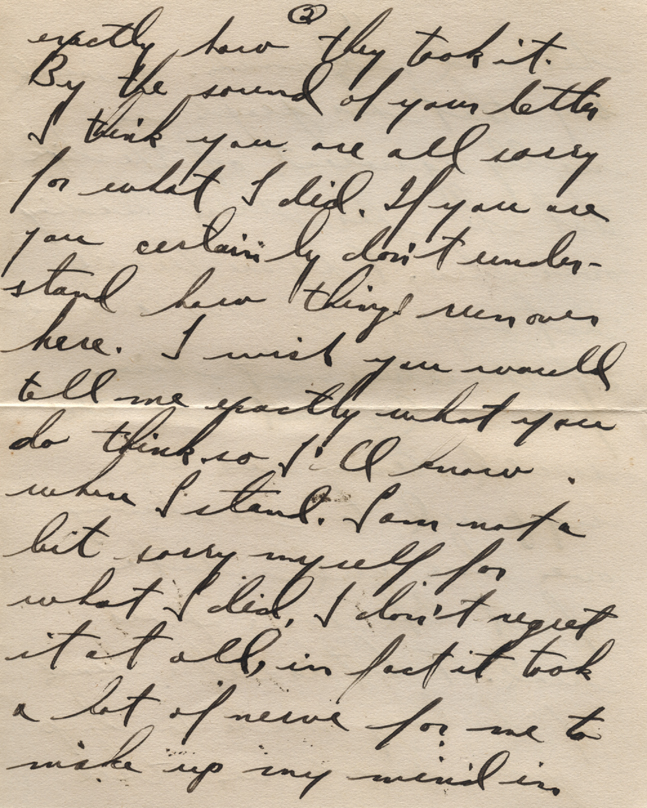 ②
exactly how they took it.
By the sound of your letter
I think you are all sorry
for what I did. If you are
you certainly don't under-
stand how things run over
here. I wish you would
tell me exactly what you
do think so I'll know
where I stand. I am not a
bit sorry myself for
what I did, I don't regret
it at all, in fact it took
a lot of nerve for me to
make up my mind in